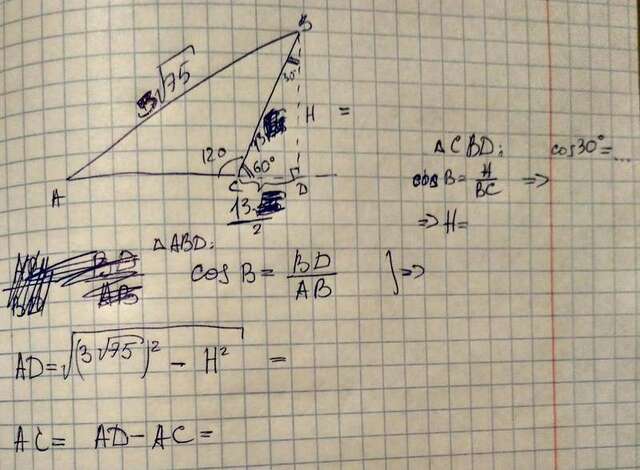 B
3√75
30°
13
H =
120
60°
A
C
D
13
2
△CBD:
cos30°=...
cos B = H/BC =>
=> H=
△ABD:
cos B = BD/AB } =>
AD=√(3√75)² - H² =
AC = AD-AC =